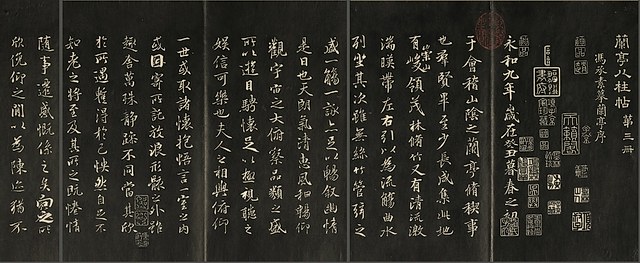 蘭亭八柱帖 第三冊
馮承素摹蘭亭序
永和九年歲在癸丑暮春之初會
于會稽山陰之蘭亭脩稧事
也羣賢畢至少長咸集此地
有崇山峻領茂林脩竹又有清流激
湍暎帶左右引以為流觴曲水
列坐其次雖無絲竹管弦之
盛一觴一詠亦足以暢叙幽情
是日也天朗氣清惠風和暢仰
觀宇宙之大俯察品類之盛
所以遊目騁懷足以極視聽之
娛信可樂也夫人之相與俯仰
一世或取諸懷抱悟言一室之内
或因寄所託放浪形骸之外雖
趣舍萬殊靜躁不同當其欣
於所遇暫得於己怏然自足不
知老之將至及其所之既惓情
隨事遷感慨係之矣向之所
欣俛仰之閒以為陳迹猶不